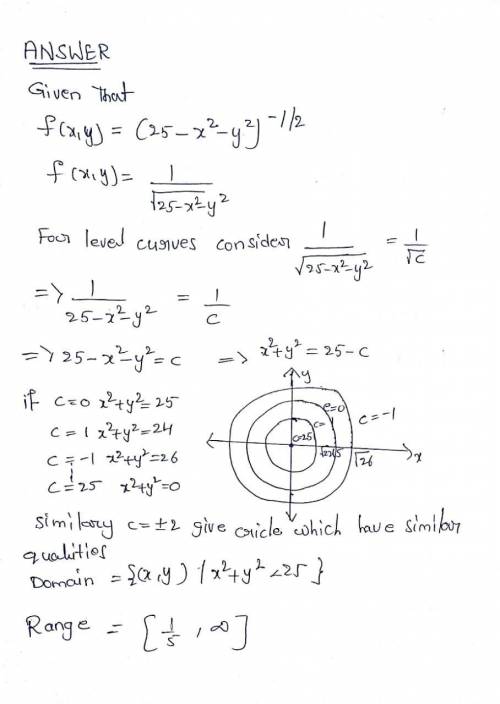 ANSWER
Given that
f(x,y) = (25-x²-y²)^-1/2
f(x,y) = 1/√25-x²-y²
Foor level curves consider 1/√25-x²-y² = 1/√c
=> 1/25-x²-y² = 1/c
=> 25-x²-y² = c => x²+y² = 25-c
if c=0 x²+y²=25
c=1 x²+y²=24
c=-1 x²+y²=26
c=25 x²+y²=0
y
c=0
c=-1
c=
c=25
√26
x
Similary c=±2 give cricle which have similar
qualities
Domain = {(x,y) / x²+y²<25}
Range = [1/5, ∞]